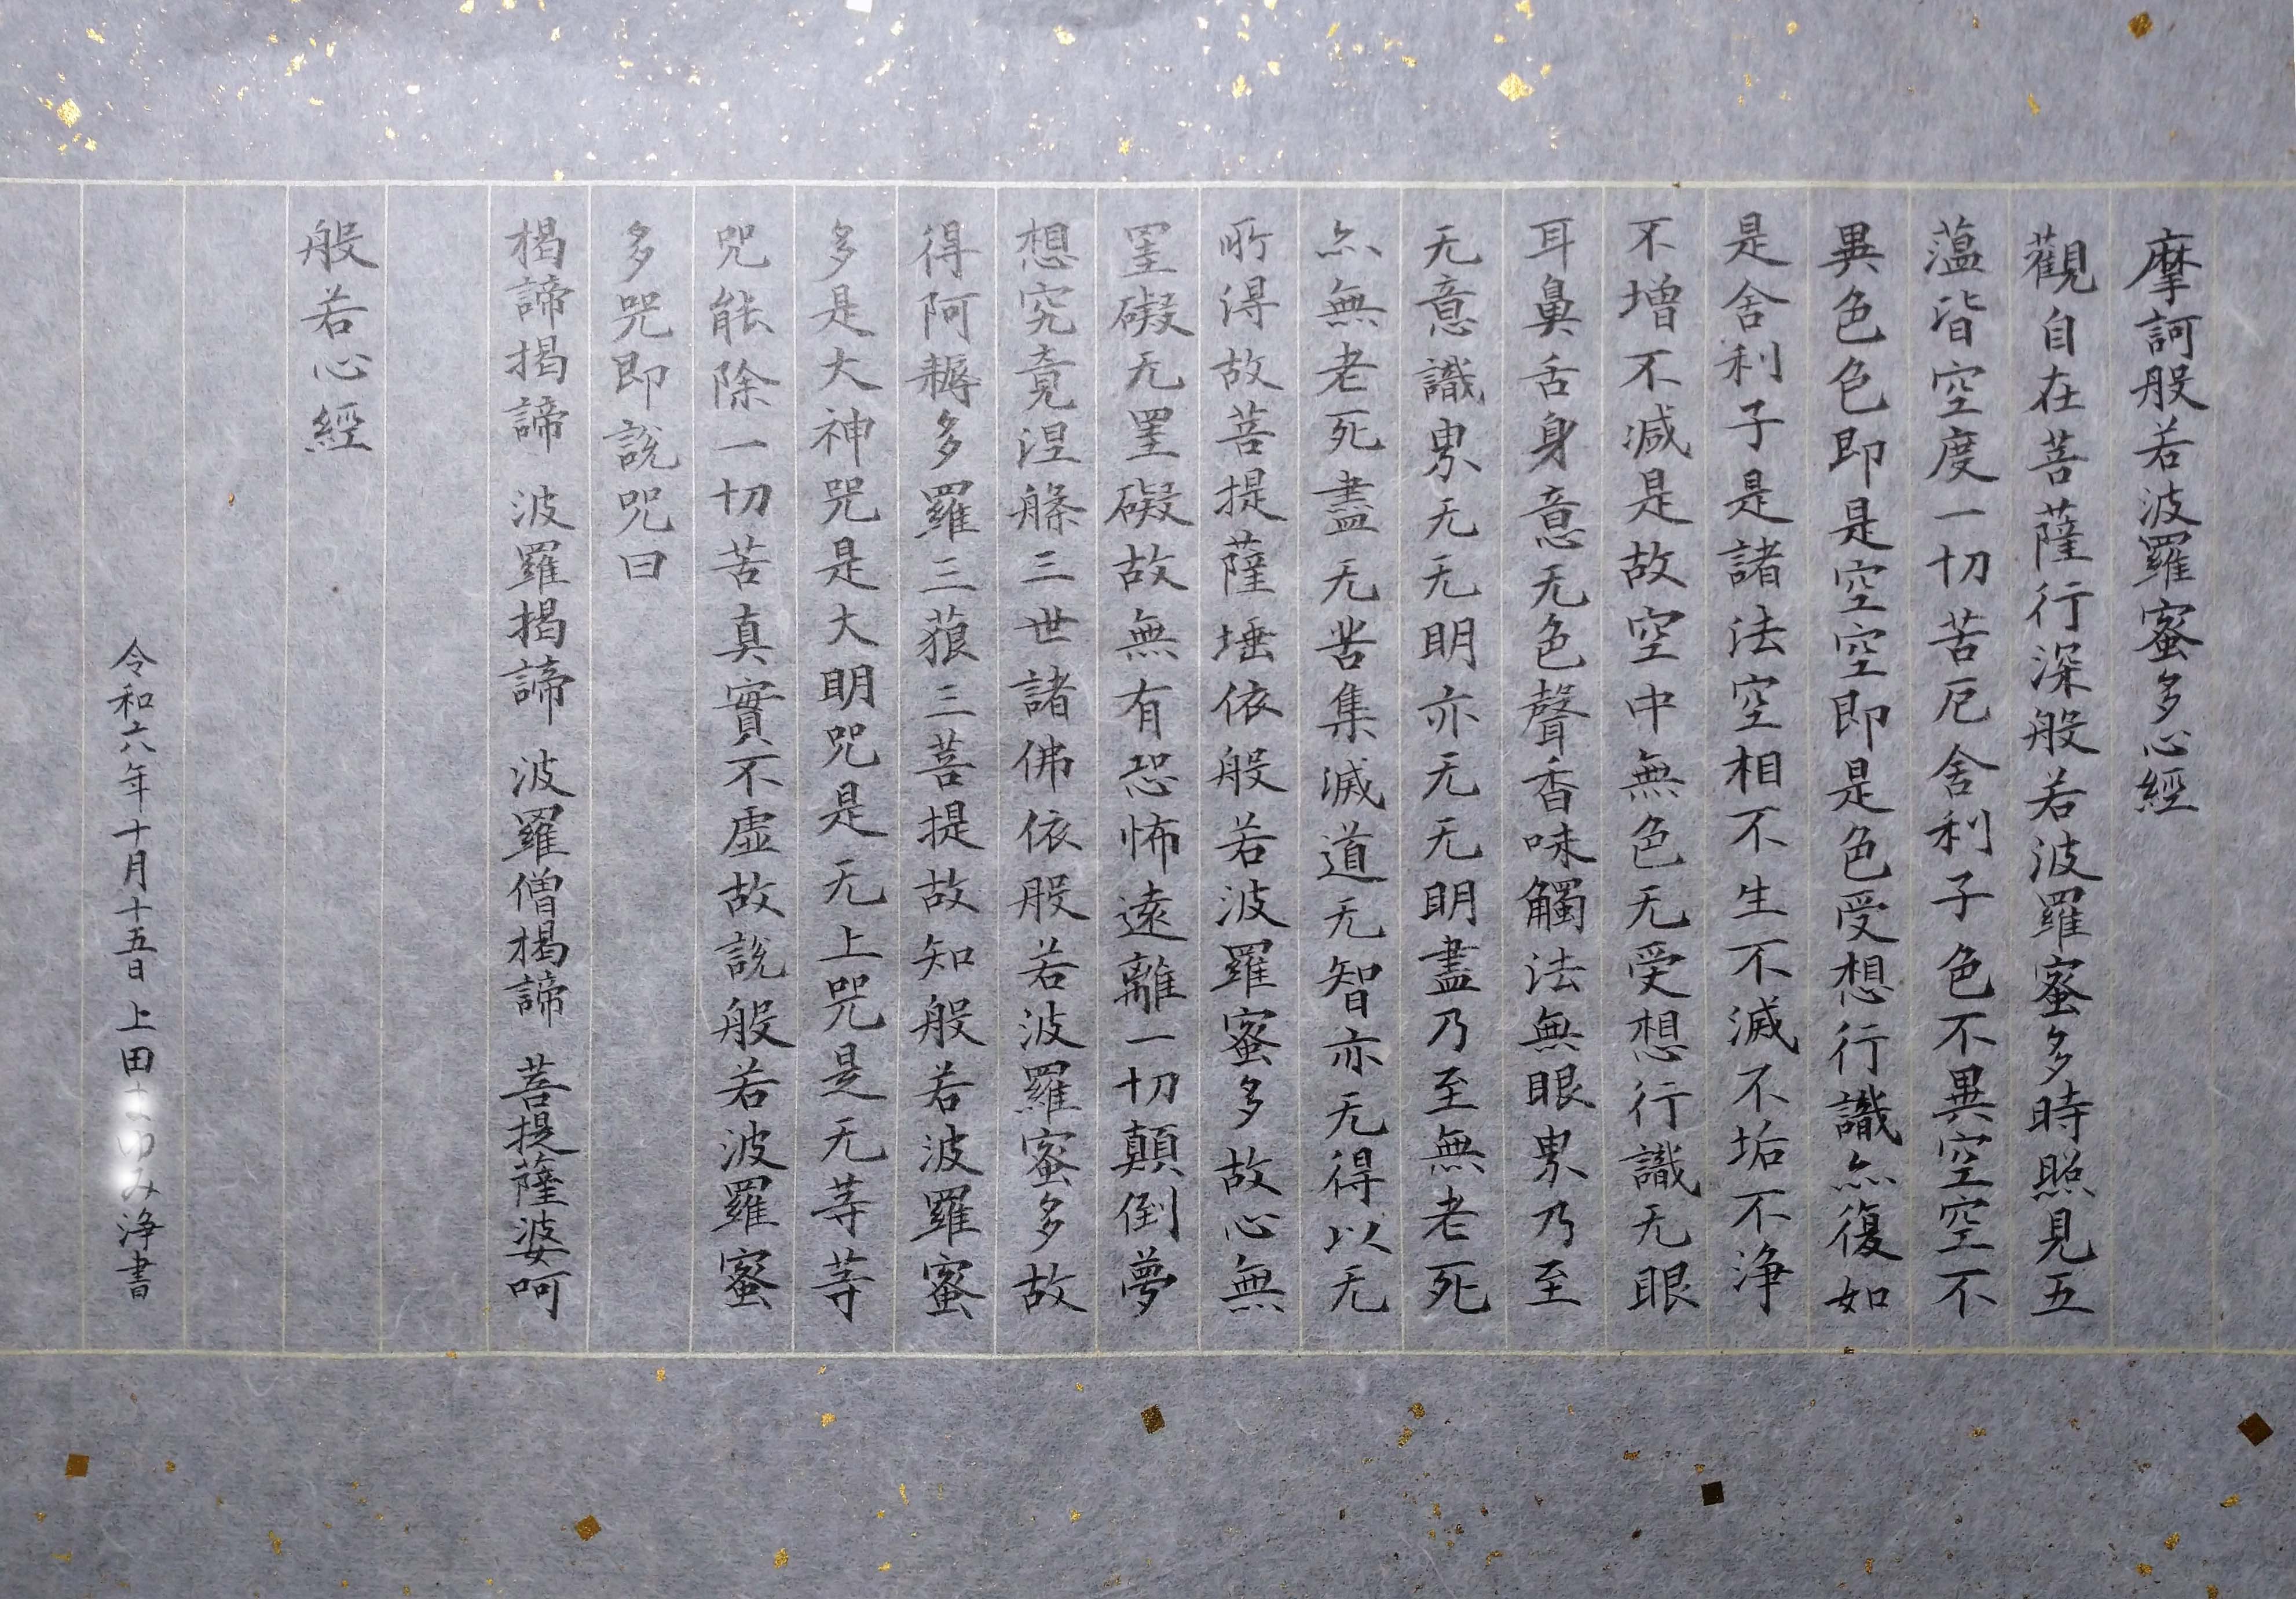 摩訶般若波羅蜜多心經
觀自在菩薩行深般若波羅蜜多時照見五
薀皆空度一切苦厄舍利子色不異空空不
異色色即是空空即是色受想行識亦復如
是舍利子是諸法空相不生不滅不垢不浄
不增不減是故空中無色无受想行識无眼
耳鼻舌身意无色聲香味觸法無眼界乃至
无意識界无无明亦无无明盡乃至無老死
亦無老死盡无苦集滅道无智亦无得以无
所得故菩提薩埵依般若波羅蜜多故心無
罣礙无罣礙故無有恐怖遠離一切顛倒夢
想究竟涅槃三世諸佛依般若波羅蜜多故
得阿耨多羅三藐三菩提故知般若波羅蜜
多是大神咒是大明咒是无上咒是无等等
咒能除一切苦真實不虛故說般若波羅蜜
多咒即說咒曰
揭諦揭諦 波羅揭諦 波羅僧揭諦 菩提薩婆呵
般若心經
令和六年十月十五日 上田 み浄書